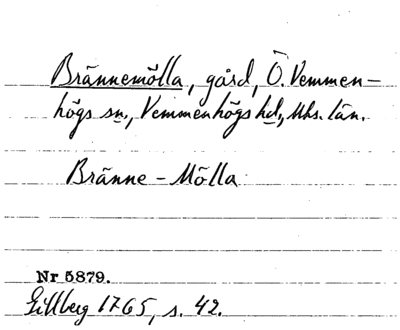 Brännemölla, gård, Ö. Vemmen-
högs sn., Vemmenhögs hd., Mhs. län.
Bränne-Mölla
Nr 5879.
Gillberg 1765, s. 42.